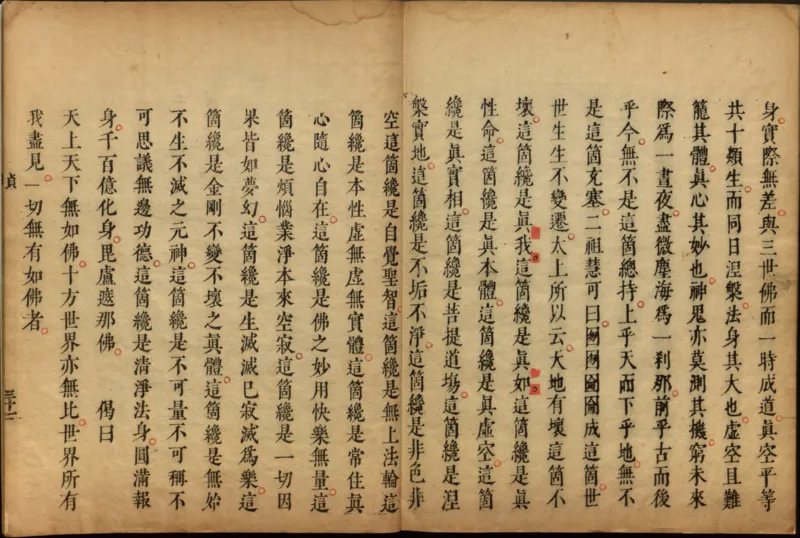 身實際無差與三世佛而一時成道真空平等
共十類生而同日涅槃法身其大也虛空且難
籠其體真心其妙也神鬼亦莫測其機窮未來
際為一晝夜盡微塵海為一剎那前乎古而後
乎今無不是這箇總持上乎天而下乎地無不
是這箇充塞二祖慧可曰囫囫圇圇成這箇世
世生生不變遷太上所以云天地有壞這箇不
壞這箇纔是真我這箇纔是真如這箇纔是真
性命這箇纔是真本體這箇纔是真虛空這箇
纔是真實相這箇纔是菩提道場這箇纔是涅
槃實地這箇纔是不垢不淨這箇纔是非色非
空這箇纔是自覺聖智這箇纔是無上法輪這
箇纔是本性虛無虛無實體這箇纔是常住真
心隨心自在這箇纔是佛之妙用快樂無量這
箇纔是煩惱業淨本來空寂這箇纔是一切因
果皆如夢幻這箇纔是生滅滅已寂滅為樂這
箇纔是金剛不變不壞之真體這箇纔是無始
不生不滅之元神這箇纔是不可量不可稱不
可思議無邊功德這箇纔是清淨法身圓滿報
身千百億化身毘盧遮那佛 偈曰
天上天下無如佛十方世界亦無比世界所有
我盡見一切無有如佛者
貞
三十二